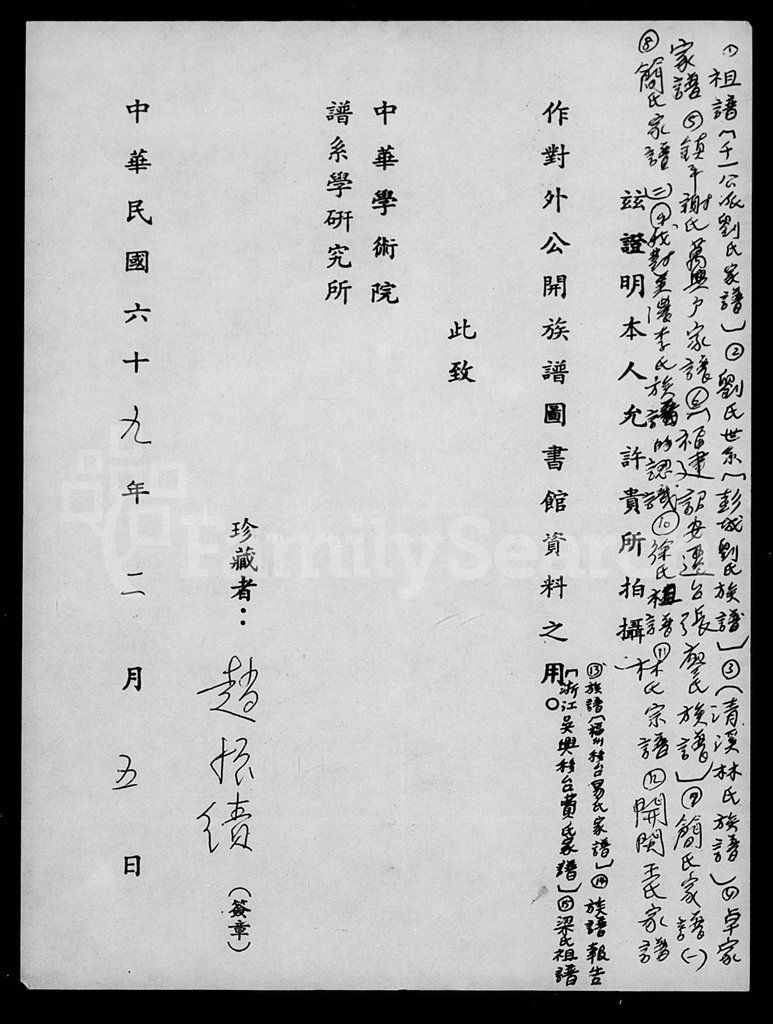 ①祖譜(千一公派劉氏家譜)②劉氏世系(彭城劉氏族譜)③(清溪林氏族譜)④卓家
家譜⑤鎮平謝氏萬興户家譜⑥(福建詔安遷台張廖氏族譜)⑦簡氏家譜(一)
⑧簡氏家譜(二)⑨我對李氏族譜的認識⑩徐氏祖譜⑪林氏宗譜⑫開閩王氏家譜
茲證明本人允許貴所拍攝
⑬族譜(福州移台易氏家譜)⑭族譜報告
(浙江吳興移台費氏家譜)⑮梁氏祖譜
作對外公開族譜圖書館資料之用。
此致
中華學術院
譜系學研究所
珍藏者：趙振績(簽章)
中華民國六十九年二月五日
FamilySearch